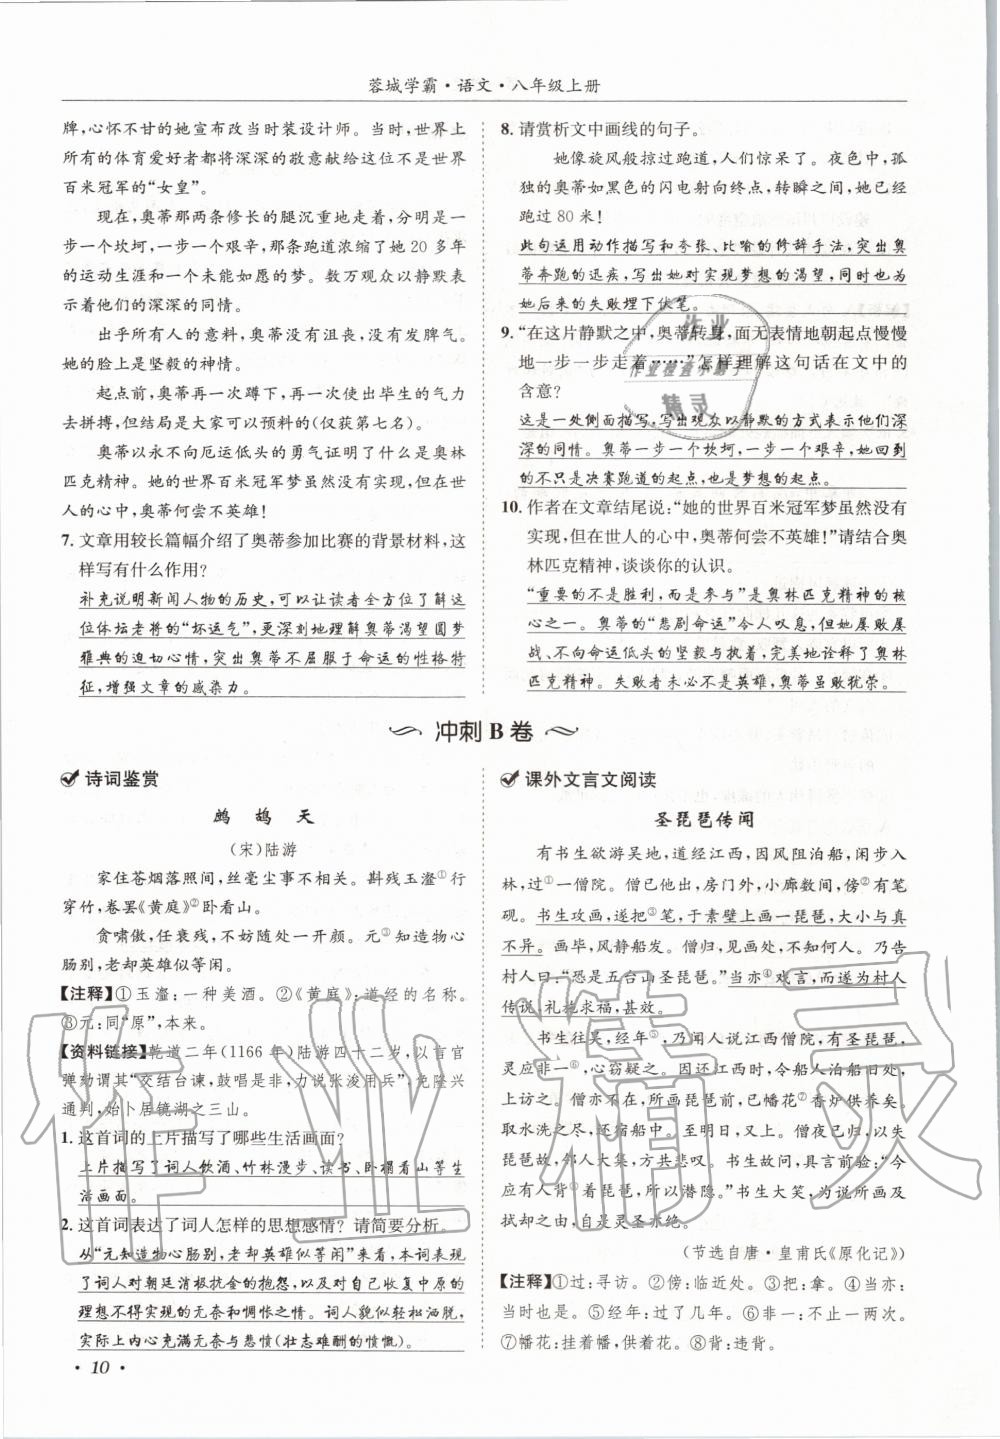 蓉城学霸·语文·八年级上册
牌,心怀不甘的她宣布改当时装设计师。当时,世界上
所有的体育爱好者都将深深的敬意献给这位不是世界
百米冠军的“女皇”。
现在,奥蒂那两条修长的腿沉重地走着,分明是一
步一个坎坷,一步一个艰辛,那条跑道浓缩了她 20 多年
的运动生涯和一个未能如愿的梦。数万观众以静默表
示着他们的深深的同情。
出乎所有人的意料,奥蒂没有沮丧,没有发脾气。
她的脸上是坚毅的神情。
起点前,奥蒂再一次蹲下,再一次使出毕生的气力
去拼搏,但结局是大家可以预料的(仅获第七名)。
奥蒂以永不向厄运低头的勇气证明了什么是奥林
匹克精神。她的世界百米冠军梦虽然没有实现,但在世
人的心中,奥蒂何尝不英雄!
7. 文章用较长篇幅介绍了奥蒂参加比赛的背景材料,这
样写有什么作用?
补充说明新闻人物的历史,可以让读者全方位了解这
位体坛老将的“坏运气”,更深刻地理解奥蒂渴望圆梦
雅典的迫切心情,突出奥蒂不屈服于命运的性格特
征,增强文章的感染力。
8. 请赏析文中画线的句子。
她像旋风般掠过跑道,人们惊呆了。夜色中,孤
独的奥蒂如黑色的闪电射向终点,转瞬之间,她已经
跑过 80 米!
此句运用动作描写和夸张、比喻的修辞手法,突出奥
蒂奔跑的迅疾,写出她对实现梦想的渴望,同时也为
她后来的失败埋下伏笔。
9. “在这片静默之中,奥蒂转身,面无表情地朝起点慢慢
地一步一步走着……”怎样理解这句话在文中的
含意?
这是一处侧面描写,写出观众以静默的方式表示他们深
深的同情。奥蒂一步一个坎坷,一步一个艰辛,她回到
的不只是决赛跑道的起点,也是梦想的起点。
10. 作者在文章结尾说:“她的世界百米冠军梦虽然没有
实现,但在世人的心中,奥蒂何尝不英雄!”请结合奥
林匹克精神,谈谈你的认识。
“重要的不是胜利,而是参与”是奥林匹克精神的核
心之一。奥蒂的“悲剧命运”令人叹息,但她屡败屡
战、不向命运低头的坚毅与执着,完美地诠释了奥林
匹克精神。失败者未必不是英雄,奥蒂虽败犹荣。
冲刺 B 卷
诗词鉴赏
鹧 鸪 天
(宋)陆游
家住苍烟落照间,丝毫尘事不相关。斟残玉瀣①行
穿竹,卷罢《黄庭》②卧看山。
贪啸傲,任衰残,不妨随处一开颜。元③知造物心
肠别,老却英雄似等闲。
【注释】①玉瀣:一种美酒。②《黄庭》:道经的名称。
③元:同“原”,本来。
【资料链接】乾道二年(1166 年)陆游四十二岁,以言官
弹劾谓其“交结台谏,鼓唱是非,力说张浚用兵”,免隆兴
通判,始卜居镜湖之三山。
1. 这首词的上片描写了哪些生活画面?
上片描写了词人饮酒、竹林漫步、读书、卧榻看山等生
活画面。
2. 这首词表达了词人怎样的思想感情?请简要分析。
从“元知造物心肠别,老却英雄似等闲”来看,本词表现
了词人对朝廷消极抗金的抱怨,以及对自己收复中原的
理想不得实现的无奈和惆怅之情。词人貌似轻松洒脱,
实际上内心充满无奈与悲愤(壮志难酬的愤慨)。
课外文言文阅读
圣琵琶传闻
有书生欲游吴地,道经江西,因风阻泊船,闲步入
林,过①一僧院。僧已他出,房门外,小廊数间,傍②有笔
砚。书生攻画,遂把③笔,于素壁上画一琵琶,大小与真
不异。画毕,风静船发。僧归,见画处,不知何人。乃告
村人曰:“恐是五台山圣琵琶。”当亦④戏言,而遂为村人
传说,礼施求福,甚效。
书生往吴,经年⑤,乃闻人说江西僧院,有圣琵琶,
灵应非一⑥,心窃疑之。因还江西时,令船人泊船旧处,
上访之。僧亦不在,所画琵琶依旧,已幡花⑦香炉供养矣。
取水洗之尽,还宿船中。至明日,又上。僧归,以失
琵琶故,邻人大集,方共悲叹。书生故问,具言前验:“今
应有人背⑧着琵琶,所以潜隐。”书生大笑,为说所画及
拭却之由,自是灵圣亦绝。
(节选自唐·皇甫氏《原化记》)
【注释】①过:寻访。②傍:临近处。③把:拿。④当亦:
当时也是。⑤经年:过了几年。⑥非一:不止一两次。
⑦幡花:挂着幡,供着花。⑧背:违背。
· 10 ·
作业精灵
作业
作业检查小助手
精灵